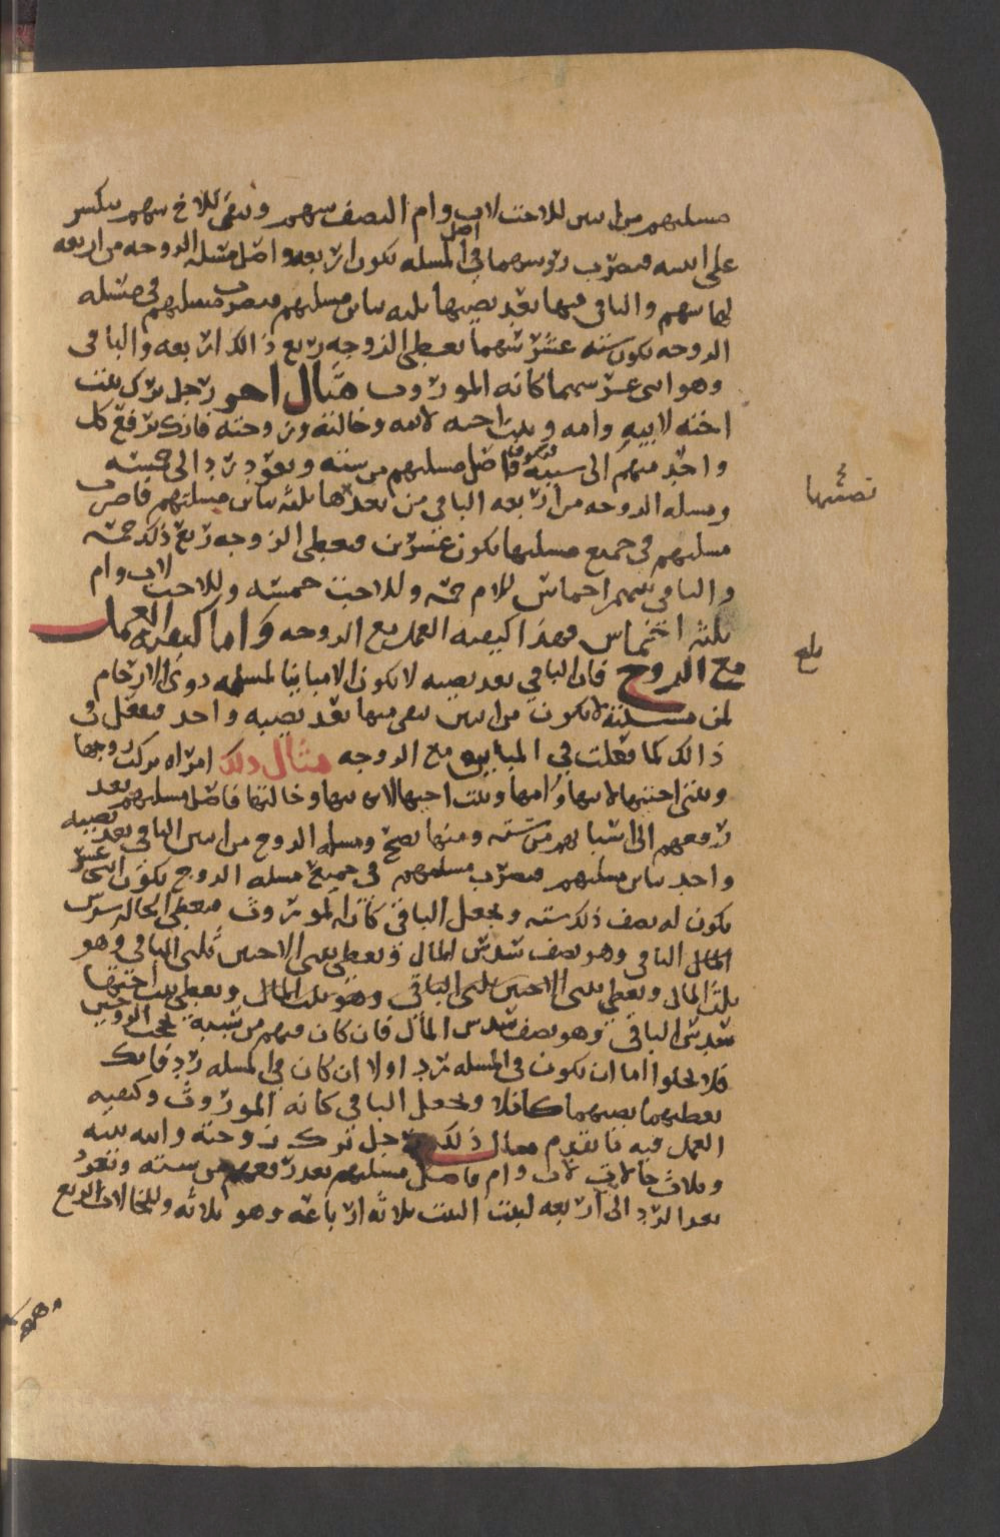 مسلتهم من اثنين للاخت لاب وام النصف سهم وبقي للاخ سهم ينكسر
على اثنين فتضرب رؤسهما في اصل المسله يكون اربعه واصل مسله الزوجه من اربعه
لها سهم والباقي منها بعد نصيبها ثلثه تباين مسلتهم فتضرب مسلتهم في مسله
الزوجه يكون سته عشر سهما يعطى الزوجه ربع ذالك اربعه والباقي
وهو اثنى عشر سهما كانه الموروث مثال اخر رجل ترك بنت
اخته لابيه وامه وبنت اخته لامه وخالته وزوجته فانك ترفع كل
واحد منهم الى سببه فاصل مسلتهم من سته ويعود برد الى خمسه
ومسله الزوجه من اربعه الباقي من بعدها ثلثه تباين مسلتهم فاضرب
مسلتهم في جميع مسلتها يكون عشرين فيعطى الزوجه ربع ذلك خمسه
والباقي سهم اخماس للام خمسه وللاخت خمسه وللاخت لاب وام
ثلثه اخماس فهذا كيفيه العمل مع الزوجه واما كيفيه العمل
مع الزوج فان الباقي بعد نصيبه لا يكون الا مباينا لمسله دوي الارحام
لان مسلته تكون من اثنين يبقى منها بعد نصيبه واحد فيفعل في
ذالك كما فعلت في المباين مع الزوجه مثال ذلك امراه تركت زوجها
وبنتي اختيها لابيها وامها وبنت اختها لابيها وخالتها فاصل مسلتهم بعد
رفعهم الى اسبابهم من سته ومنها تصح ومسله الزوج من اثنين الباقي بعد نصيبه
واحد تباين مسلتهم فتضرب مسلتهم في جميع مسله الزوج يكون اثنى عشر
يكون له نصف ذلك سته ويجعل الباقي كانه الموروث فيعطى الخاله سدس
المال الباقي وهو نصف سدس المال ويعطى بنتي الاختين ثلثي الباقي وهو
ثلث المال ويعطى بنتي الاختين ثلثي الباقي وهو ثلث المال ويعطى بنت اختها
سدس الباقي وهو نصف سدس المال فان كان فيهم من سببه تحجب الزوجين
فلا يخلوا اما ان يكون في المسله رد او لا ان كان في المسله رد فانك
تعطيهما نصيبهما كاملا ويجعل الباقي كانه الموروث وكيفيه
العمل فيه ما تقدم مثال ذلك رجل ترك زوجته وابنه بنته
وثلاث خالات لاب وام فاصل مسلتهم بعد رفعهم من سته وتعود
بعد الرد الى اربعه لبنت البنت ثلاثه ارباعه وهو ثلاثه وللخالات الربع
نصيبها
بلغ
وهو